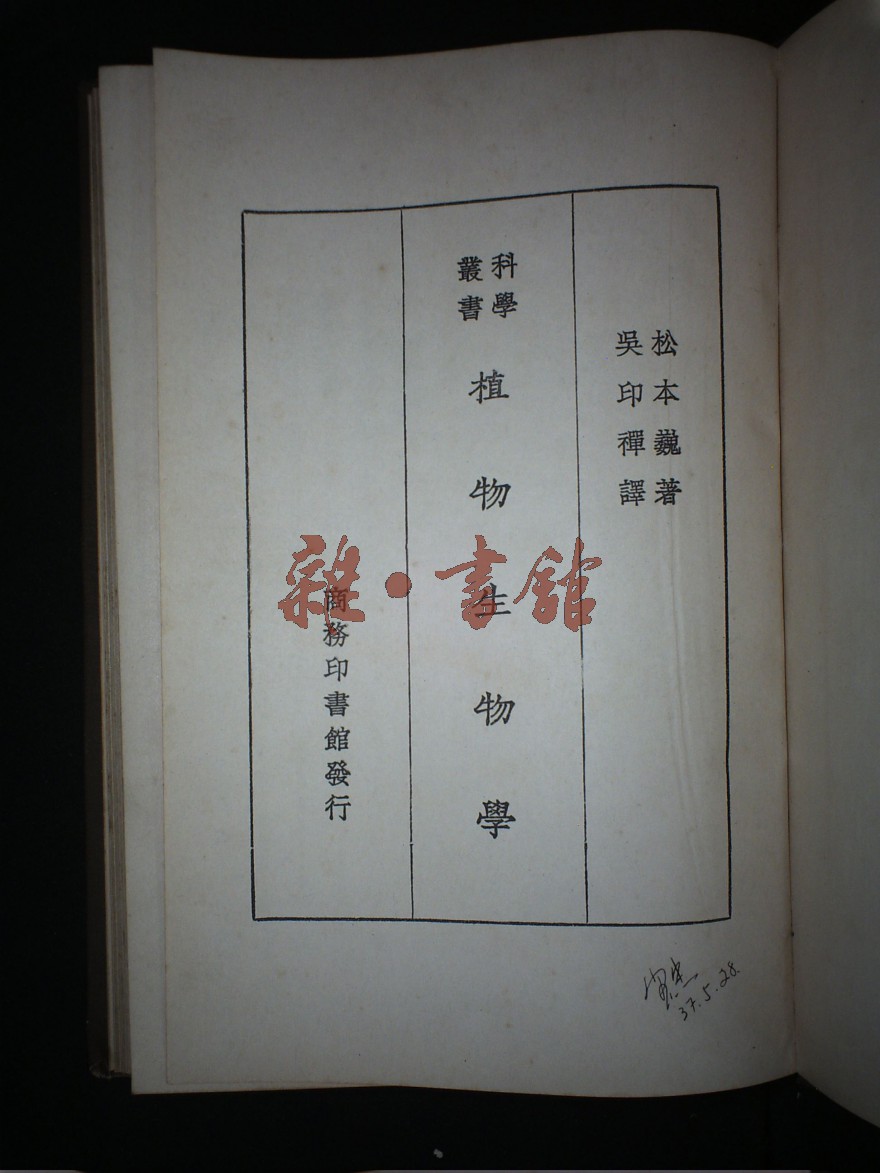 松本巍著
吳印禪譯
科學
叢書
植物生物學
商務印書館發行
雜·書館
37.5.28.